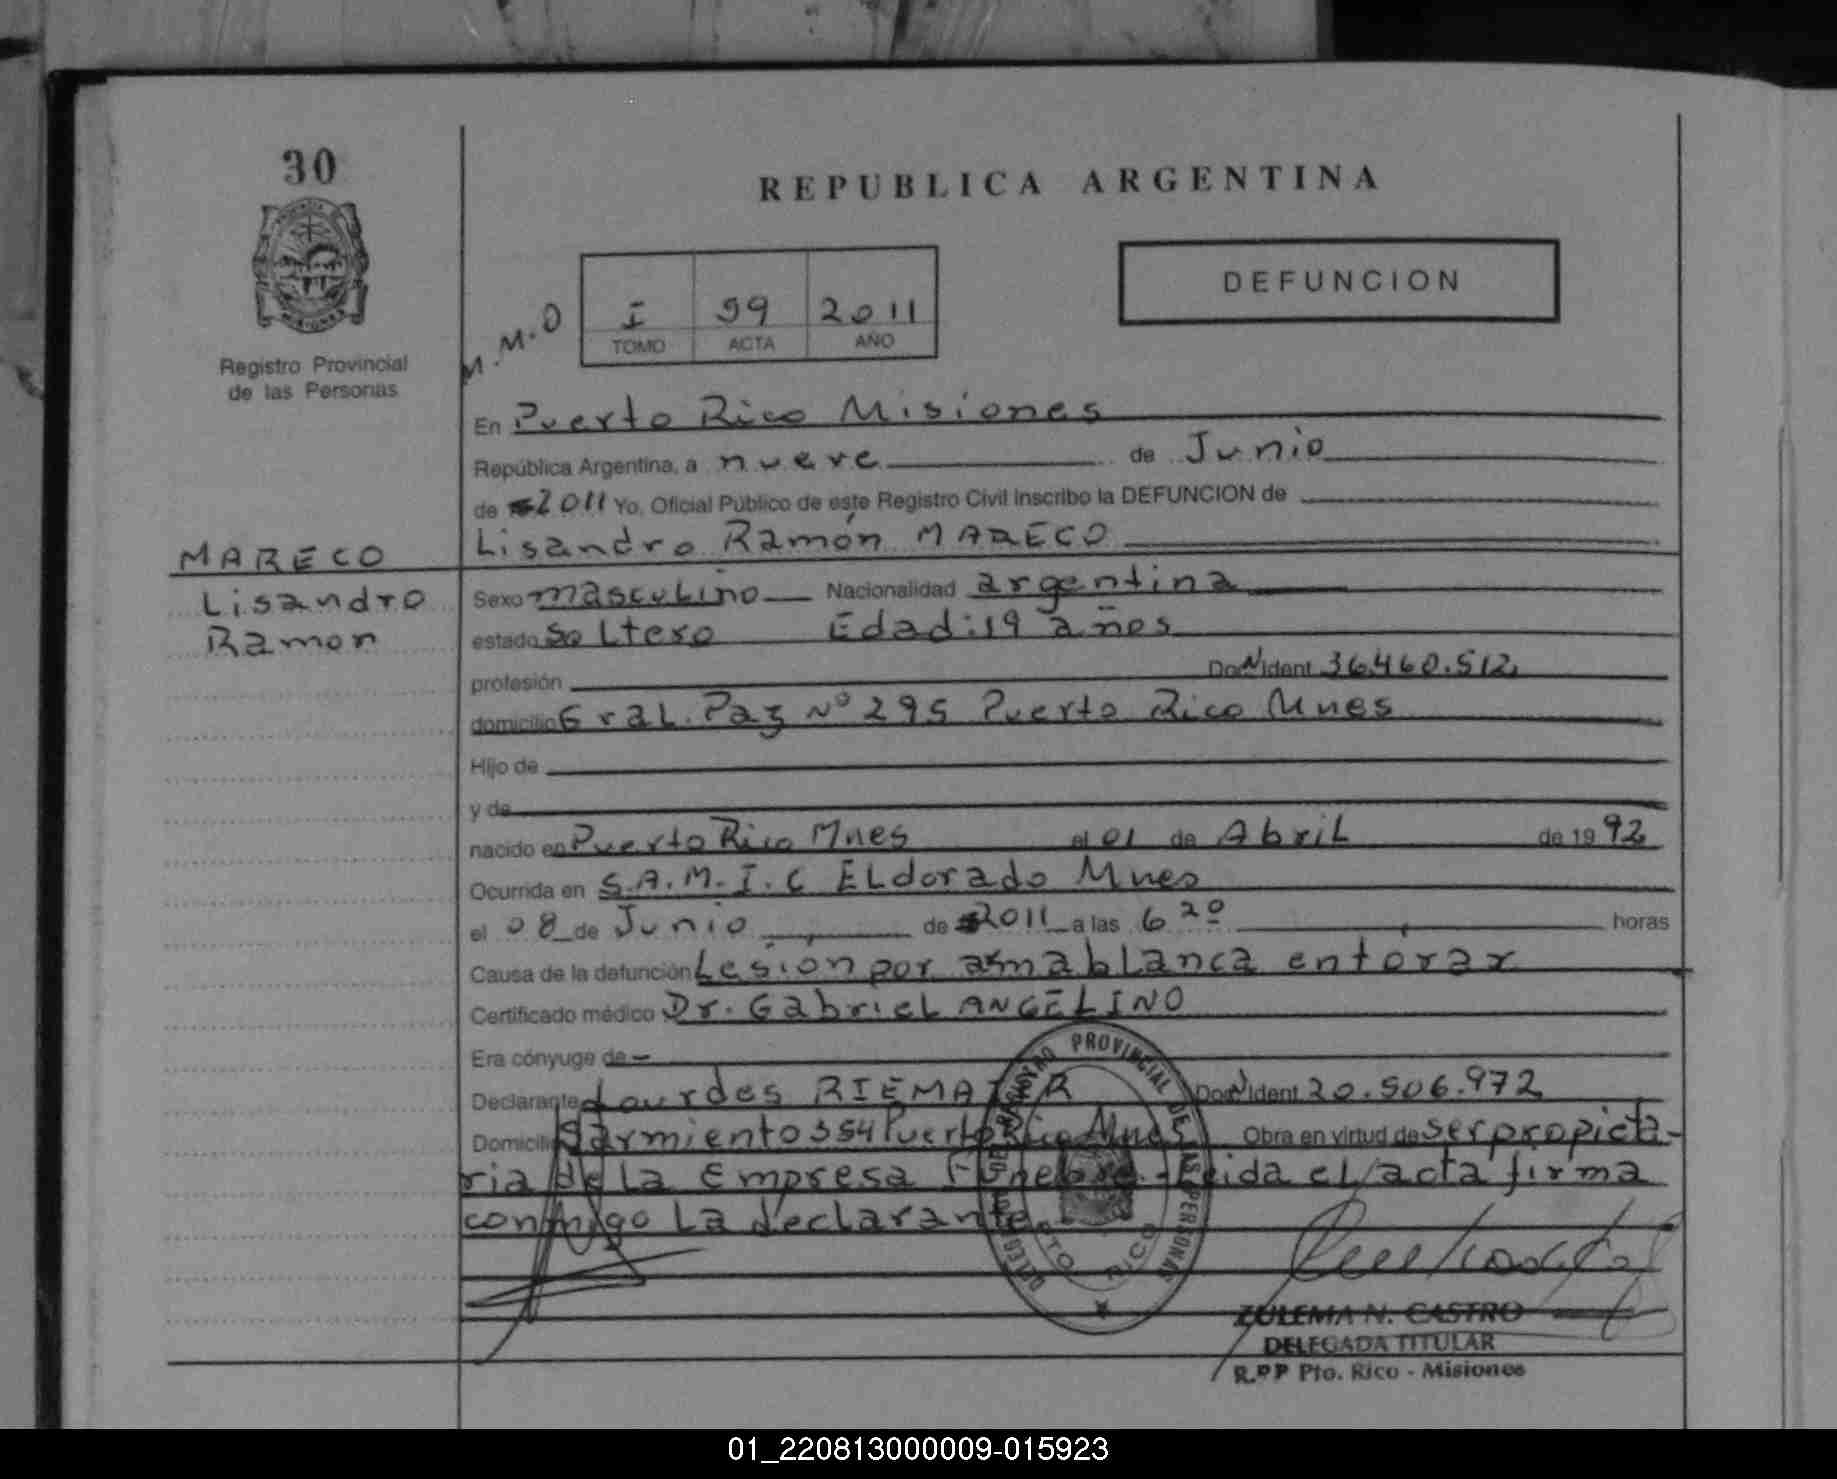 30
REPUBLICA ARGENTINA
DEFUNCION
M.M.O
I 59 2011
TOMO ACTA AÑO
Registro Provincial
de las Personas
En Puerto Rico Misiones
República Argentina, a nueve de Junio
de 2011 Yo, Oficial Público de este Registro Civil inscribo la DEFUNCION de
Lisandro Ramón MARECO
MARECO
Lisandro
Ramon
Sexo masculino Nacionalidad argentina
estado soltero Edad: 19 años
profesión Doc N ident 36.460.512
domicilio Gral. Paz Nº 295 Puerto Rico Mnes
Hijo de
y de
nacido en Puerto Rico Mnes el 01 de Abril de 1992
Ocurrida en S.A.M.I.C ELdorado Mnes
el 08 de Junio de 2011 a las 6 20 horas
Causa de la defunción Lesion por arma blanca en tórax
Certificado médico Dr. Gabriel ANGELINO
Era cónyuge de -
Declarante Lourdes RIEMAIER Doc N ident 20.506.972
Domicilio Sarmiento 354 Puerto Rico Mnes Obra en virtud de ser propieta-
ria de la Empresa Funebre.-Leida el acta firma
conmigo La declarante
DELEGACION REGISTRO PROVINCIAL DE LAS PERSONAS
PTO RICO
ZULEMA N. CASTRO
DELEGADA TITULAR
R.P.P Pto. Rico - Misiones
01_220813000009-015923